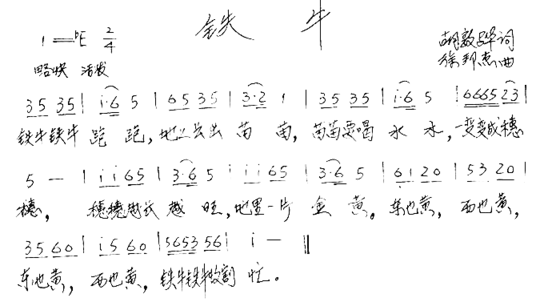 铁牛
1=ᵇE 2/4
胡敦骅词
略快 活发
徐邦杰曲
35 35 | i·6 5 | 65 35 | 3·2 1 | 35 35 | i·6 5 | 6665 23 |
铁牛铁牛 跑 跑, 地上长出 苗 苗, 苗苗要喝 水 水, 一变变成穗
5 — | i i 65 | 3·6 5 | i i 65 | 3·6 5 | 61 20 | 53 20 |
穗, 穗穗越长 越 旺, 地里一片 金 黄, 东也黄, 西也黄,
35 60 | i5 60 | 5653 56 | i — ‖
东也黄, 西也黄, 铁牛铁牛收割 忙。